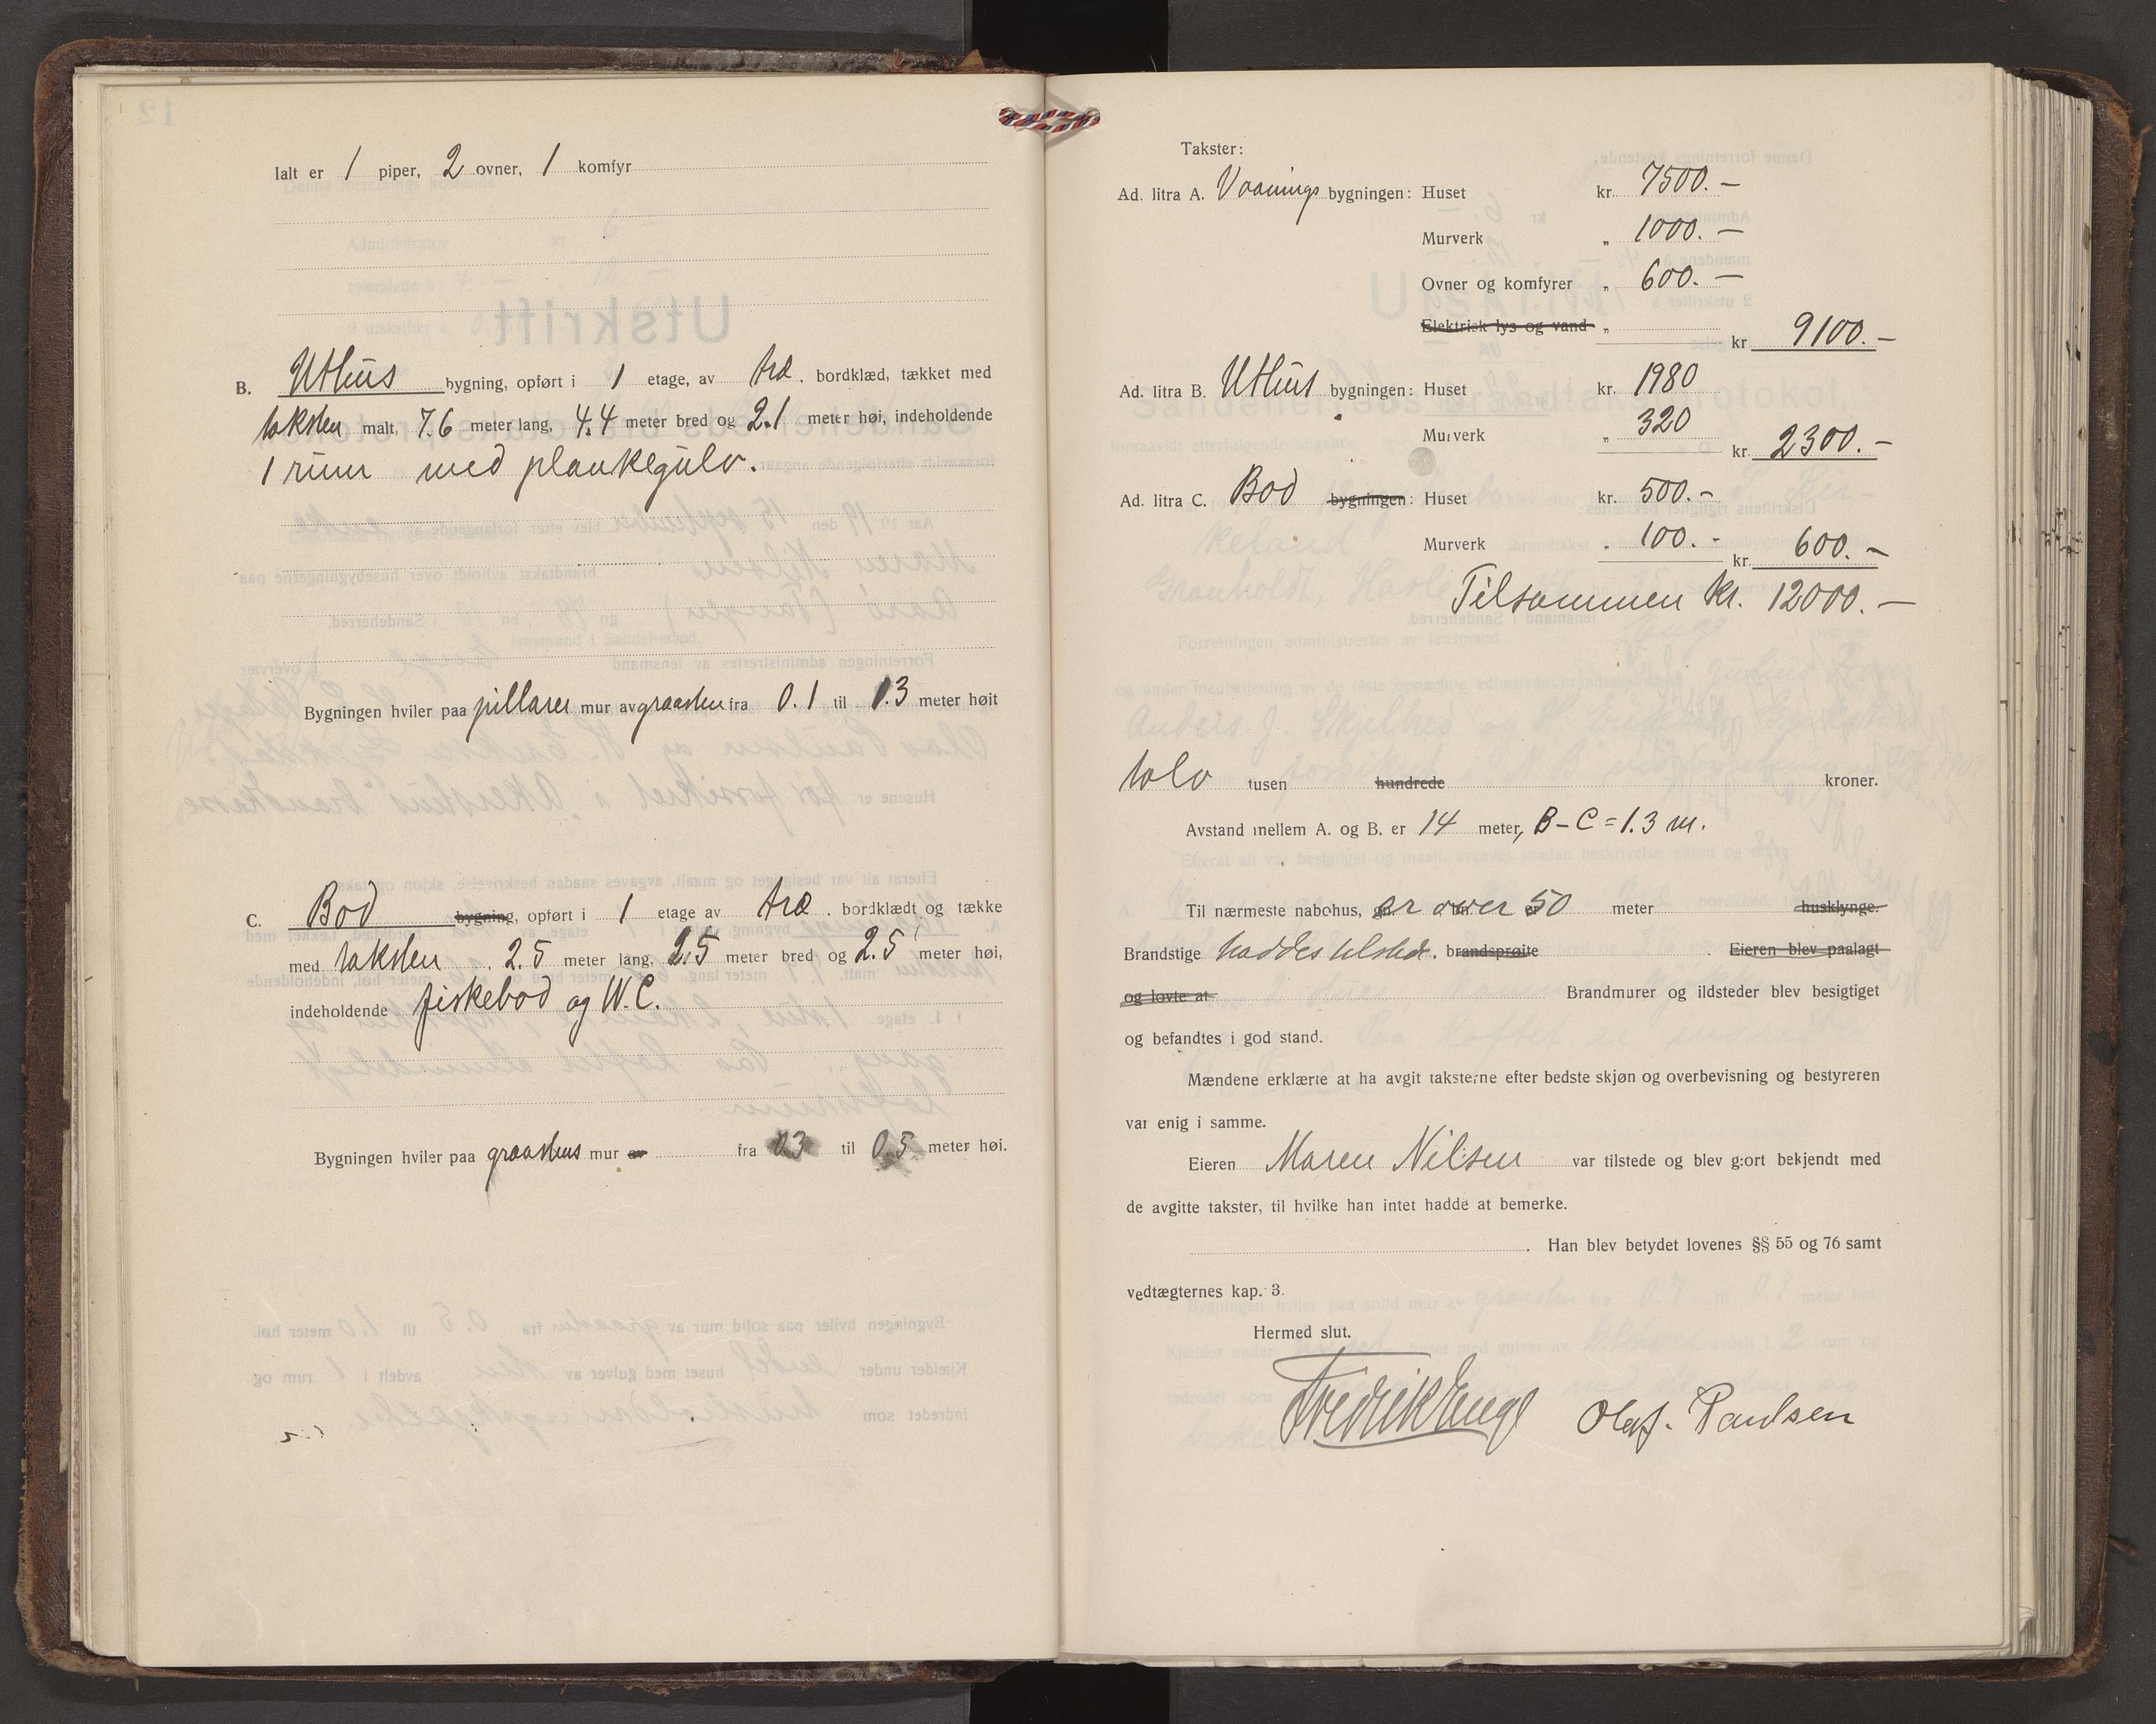 Ialt er 1 piper, 2 ovner, 1 komfyr
B. Uthus bygning, opført i 1 etage, av træ. bordklæd, tækket med
taksten malt, 7.6 meter lang, 4.4 meter bred og 2.1 meter høi, indeholdende
1 rum med plankegulv.
Bygningen hviler paa pillarer mur av graasten fra 0.1 til 1.3 meter høit
C. Bod bygning, opført i 1 etage av træ. bordklædt og tække
med taksten 2.5 meter lang, 2.5 meter bred og 2.5 meter høi,
indeholdende fiskebod og W.C.
Bygningen hviler paa graastens mur av fra 0.3 til 0.5 meter høi.
Takster:
Ad. litra A. Vaanings bygningen: Huset kr. 7500.—
Murverk „ 1000.—
Ovner og komfyrer „ 600.—
Elektrisk lys og vand „
kr 9100.—
Ad. litra B. Uthus bygningen: Huset kr. 1980
Murverk „ 320
kr. 2300.—
Ad. litra C. Bod bygningen: Huset kr. 500.—
Murverk „ 100.-
kr. 600.—
Tilsammen kr. 12000.—
tolv tusen hundrede kroner.
Avstand mellem A. og B. er 14 meter, B-C=1.3 m.
Til nærmeste nabohus, er over 50 meter husklynge.
Brandstige haddes tilstede. brandsprøite . Eieren blev paalagt
og lovte at Brandmurer og ildsteder blev besigtiget
og befandtes i god stand.
Mændene erklærte at ha avgit taksterne efter bedste skjøn og overbevisning og bestyreren
var enig i samme.
Eieren Maren Nilsen var tilstede og blev gjort bekjendt med
de avgitte takster, til hvilke han intet hadde at bemerke.
. Han blev betydet lovenes §§ 55 og 76 samt
vedtægternes kap. 3.
Hermed slut.
Fredrik Enge Olaf. Paulsen